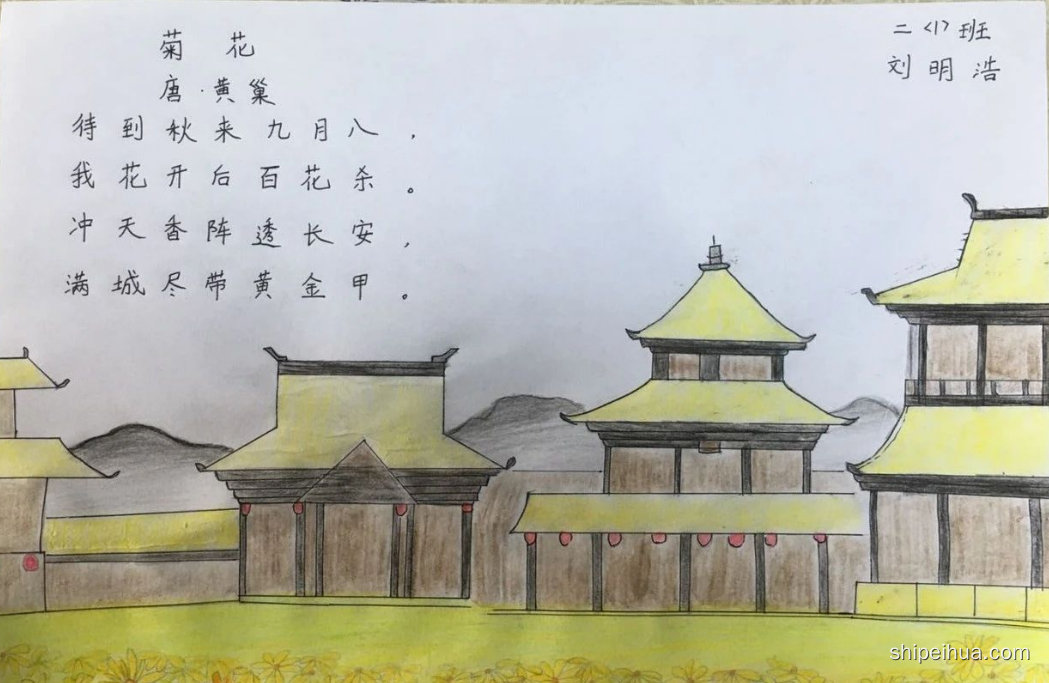 菊 花
唐·黄巢
待到秋来九月八，
我花开后百花杀。
冲天香阵透长安，
满城尽带黄金甲。
二〈1〉班
刘明浩
shipeihua.com